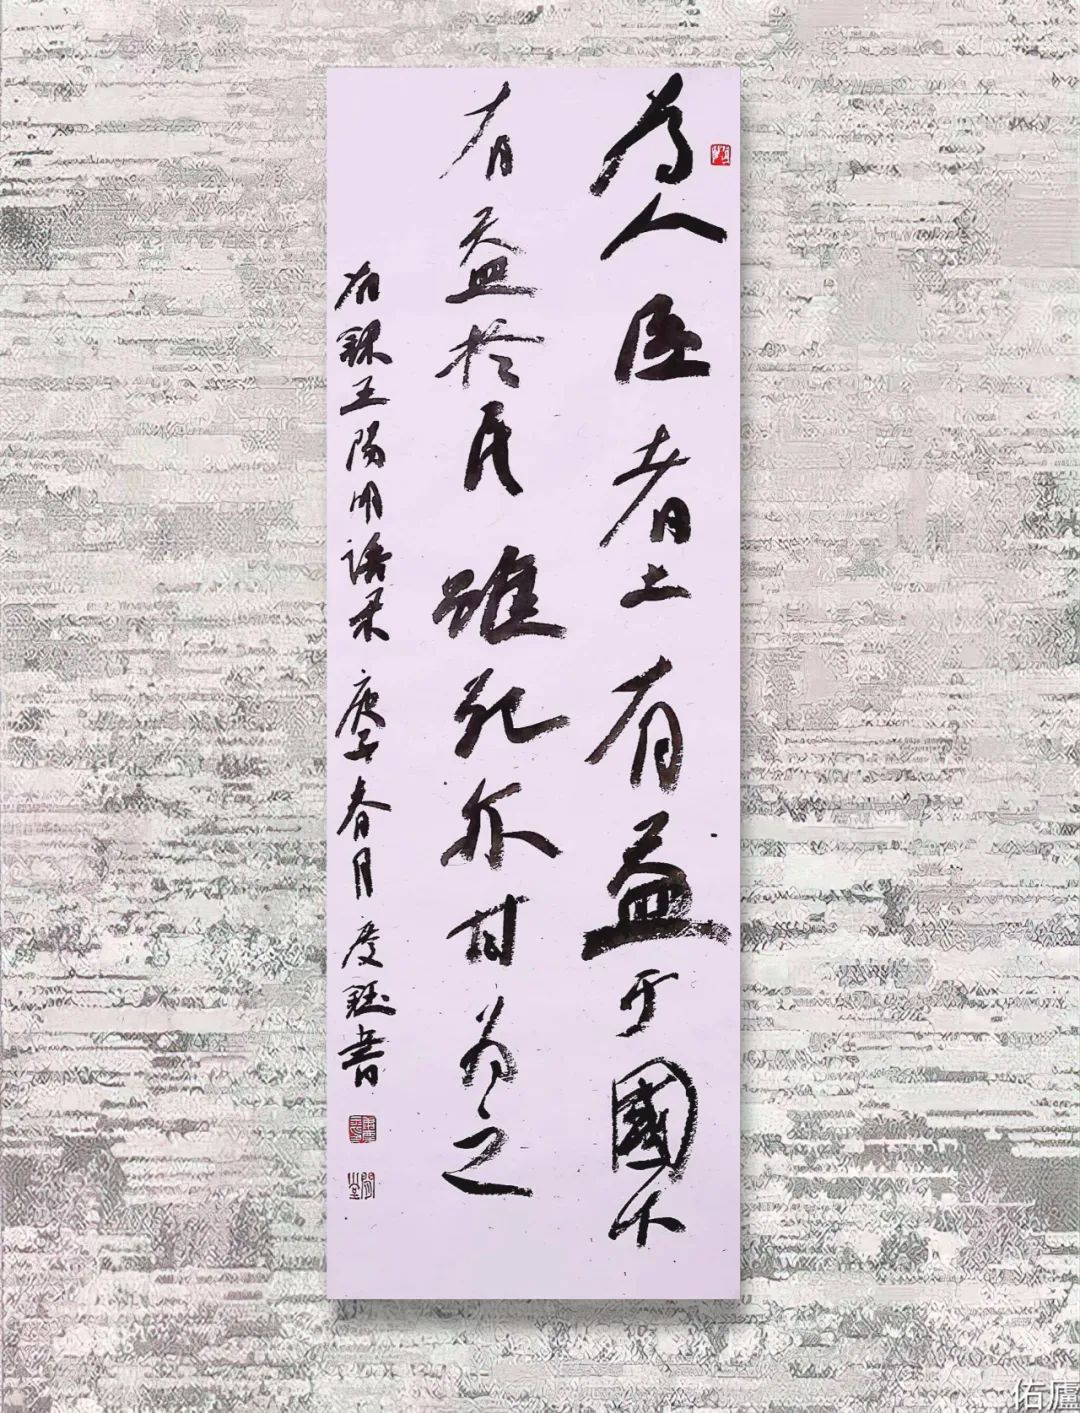 為人臣者上有益于國下
有益於民雖死亦甘為之
右錄王陽明語录 庚子春月 度鈺書
佑廬